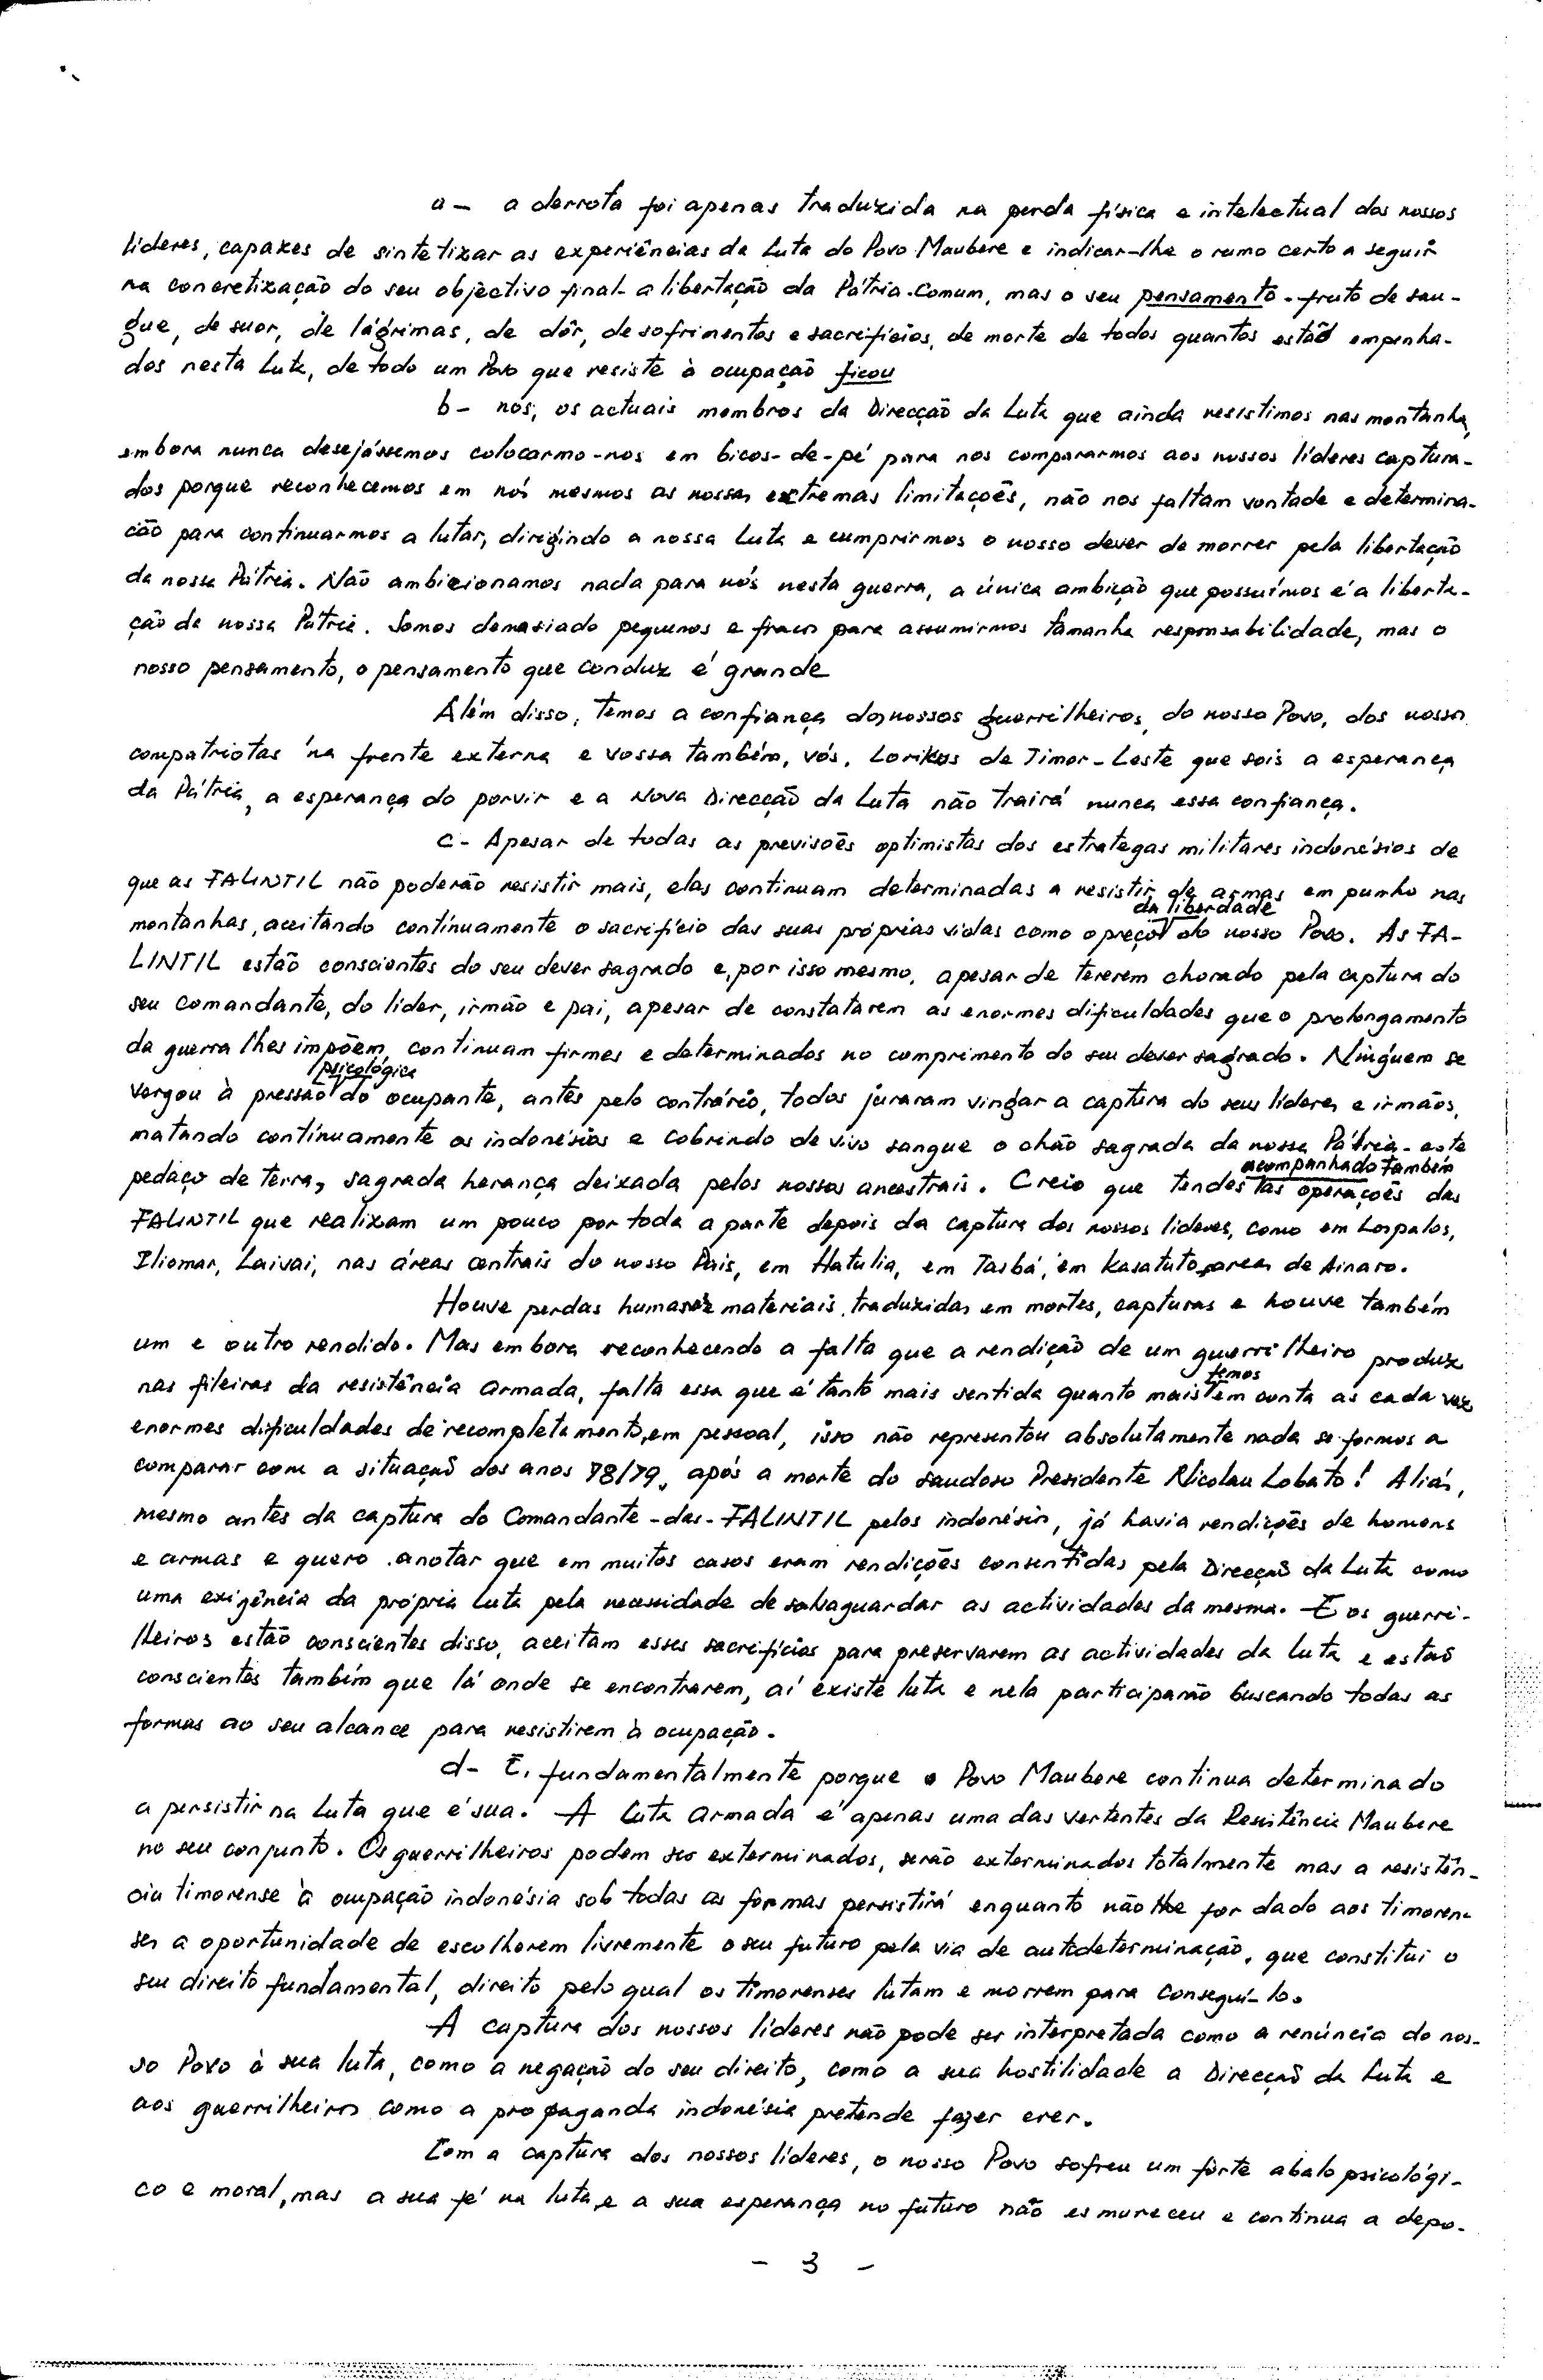 a - a derrota foi apenas traduzida na perda física e intelectual dos nossos
líderes, capazes de sintetizar as experiências da Luta do Povo Maubere e indicar-lhe o rumo certo a seguir
na concretização do seu objectivo final - a libertação da Pátria-Comum, mas o seu pensamento - fruto de san-
gue, de suor, de lágrimas, de dôr, de sofrimentos e sacrifícios, de morte de todos quantos estão empenha-
dos nesta Luta, de todo um Povo que resiste à ocupação ficou
b - nós, os actuais membros da Direcção da Luta que ainda resistimos nas montanha,
embora nunca desejássemos colocarmo-nos em bicos-de-pé para nos compararmos aos nossos líderes captura-
dos porque reconhecemos em nós mesmos as nossas extremas limitações, não nos faltam vontade e determina-
ção para continuarmos a lutar, dirigindo a nossa Luta e cumprirmos o nosso dever de morrer pela libertação
da nossa Pátria. Não ambicionamos nada para nós nesta guerra, a única ambição que possuímos é a liberta-
ção de nossa Pátria. Somos demasiado pequenos e fracos para assumirmos tamanha responsabilidade, mas o
nosso pensamento, o pensamento que conduz é grande
Além disso, temos a confiança dos nossos guerrilheiros, do nosso Povo, dos nossos
compatriotas na frente externa e vossa também, vós, Lorikos de Timor-Leste que sois a esperança
da Pátria, a esperança do porvir e a Nova Direcção da Luta não trairá nunca essa confiança.
c - Apesar de todas as previsões optimistas dos estrategas militares indonésios de
que as FALINTIL não poderão resistir mais, elas continuam determinadas a resistir de armas em punho nas
da liberdade
montanhas, aceitando contínuamente o sacrifício das suas próprias vidas como o preço do nosso Povo. As FA-
LINTIL estão conscientes do seu dever sagrado e, por isso mesmo, apesar de tererem chorado pela captura do
seu comandante, do líder, irmão e pai, apesar de constatarem as enormes dificuldades que o prolongamento
da guerra lhes impõem, continuam firmes e determinados no comprimento do seu dever sagrado. Ninguém se
psicológica
vergou à pressão do ocupante, antes pelo contrário, todos juraram vingar a captura do seus líderes e irmãos,
matando contínuamente os indonésios e cobrindo de vivo sangue o chão sagrada da nossa Pátria - este
acompanhado também
pedaço de terra, sagrada herança deixada pelos nossos ancestrais. Creio que tendes as operações das
FALINTIL que realizam um pouco por toda a parte depois da captura dos nossos líderes, como em Lospalos,
Iliomar, Laivai, nas áreas centrais do nosso País, em Hatulia, em Tasbá, em Kasatuto, areas de Ainaro.
Houve perdas humanas e materiais, traduzidas em mortes, capturas e houve também
um e outro rendido. Mas embora reconhecendo a falta que a rendição de um guerrilheiro produz
temos
nas fileiras da resistência armada, falta essa que é tanto mais sentida quanto mais em conta as cada vez
enormes dificuldades de recompletamento, em pessoal, isso não representou absolutamente nada se formos a
comparar com a situação dos anos 78/79, após a morte do saudoso Presidente Nicolau Lobato! Aliás,
mesmo antes da captura do Comandante-das-FALINTIL pelos indonésios, já havia rendições de homens
e armas e quero anotar que em muitos casos eram rendições consentidas pela Direcção da Luta como
uma exigência da própria Luta pela necessidade de salvaguardar as actividades da mesma. E os guerri-
lheiros estão conscientes disso, aceitam esses sacrifícios para preservarem as actividades da luta e estão
conscientes também que lá onde se encontrarem, aí existe luta e nela participarão buscando todas as
formas ao seu alcance para resistirem à ocupação.
d - E, fundamentalmente porque o Povo Maubere continua determinado
a persistir na Luta que é sua. A Luta armada é apenas uma das vertentes da Resistência Maubere
no seu conjunto. Os guerrilheiros podem ser exterminados, serão exterminados totalmente mas a resistên-
cia timorense à ocupação indonésia sob todas as formas persistirá enquanto não lhe for dado aos timoren-
ses a oportunidade de escolherem livremente o seu futuro pela via de autodeterminação, que constitui o
seu direito fundamental, direito pelo qual os timorenses lutam e morrem para conseguí-lo.
A captura dos nossos líderes não pode ser interpretada como a renúncia do nos-
so Povo à sua luta, como a negação do seu direito, como a sua hostilidade a Direcção da Luta e
aos guerrilheiros como a propaganda indonésia pretende fazer crer.
Com a captura dos nossos líderes, o nosso Povo sofreu um forte abalo psicológi-
co e moral, mas a sua fé na luta, e a sua esperança no futuro não esmureceu e continua a depo-
- 3 -